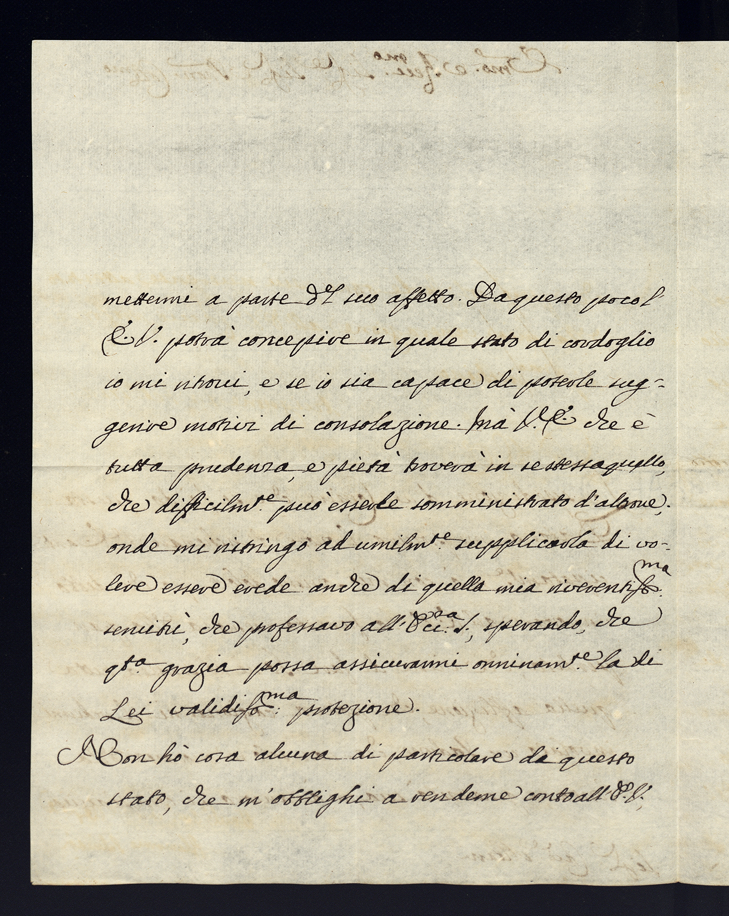 mettermi a parte d.l suo affetto. Da questo poco l'
E. V. potrà concepire in quale stato di cordoglio
io mi ritrovi, e se io sia capace di poterle sug-
gerire motivi di consolazione. Mà V. E. che è
tutta prudenza, e pietà troverà in se stessa quello,
che difficilm.te può esserle somministrato d'altrove;
onde mi ristringo ad umilm.te supplicarla di vo-
lere essere erede anche di quella mia riverentiss.ma
servitù, che professavo all' Ecc.za S., sperando, che
q.ta grazia possa assicurarmi onninam.te la di
Lei validiss.ma protezione.
Non hò cosa alcuna di particolare da questo
stato, che m'obblighi a renderne conto all' E. V.,